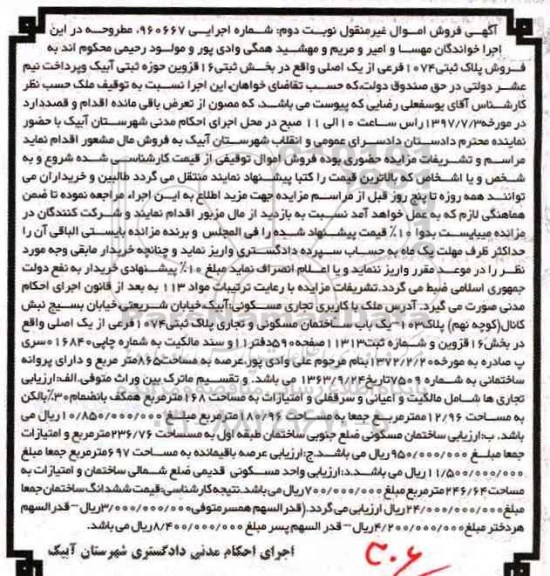 آگهی فروش اموال غیرمنقول نوبت دوم: شماره اجرایی ۹۶۰۶۶۷، مطروحه در این
اجرا خواندگان مهسا و امیر و مریم و مهشید همگی وادی پور و مولود رحیمی محکوم اند به
فروش پلاک ثبتی ۱۰۷۴ فرعی از یک اصلی واقع در بخش ثبتی ۱۶ قزوین حوزه ثبتی آبیک وپرداخت نیم
عشر دولتی در حق صندوق دولت،که حسب تقاضای خواهان،این اجرا نسبت به توقیف ملک حسب نظر
کارشناس آقای یوسفعلی رضایی که پیوست می باشد، که مصون از تعرض باقی مانده اقدام و قصددارد
در مورخه ۱۳۹۷/۷/۳ راس ساعت ۱۰ الی ۱۱ صبح در محل اجرای احکام مدنی شهرستان آبیک با حضور
نماینده محترم دادستان دادسرای عمومی و انقلاب شهرستان آبیک به فروش مال مشعور اقدام نماید
مراسم و تشریفات مزایده حضوری بوده فروش اموال توقیفی از قیمت کارشناسی شده شروع و به
شخص و یا اشخاص که بالاترین قیمت را کتبا پیشنهاد نمایند منتقل می گردد طالبین و خریداران می
توانند همه روزه تا پنج روز قبل از مراسم مزایده جهت مزید اطلاع به این اجراء مراجعه نموده تا ضمن
هماهنگی لازم که به عمل خواهد آمد نسبت به بازدید از مال مزبور اقدام نمایند و شرکت کنندگان در
مزانده میبایست بدوا ۱۰٪ قیمت پیشنهاد شده را فی المجلس و برنده مزانده بایستی الباقی آن را
حداکثر ظرف مهلت یک ماه به حساب سپرده دادگستری واریز نماید و چنانچه خریدار مابقی وجه مورد
نظر را در موعد مقرر واریز ننماید و یا اعلام انصراف نماید مبلغ ۱۰٪ پیشنهادی خریدار به نفع دولت
جمهوری اسلامی ضبط می گردد.تشریفات مزایده با رعایت ترتیبات مواد ۱۱۳ به بعد از قانون اجرای احکام
مدنی صورت می گیرد. آدرس ملک با کاربری تجاری مسکونی:آبیک خیابان شریعتی خیابان بسیج نبش
کانال(کوچه نهم) پلاک ۱۰۳-یک باب ساختمان مسکونی و تجاری پلاک ثبتی ۱۰۷۴ فرعی از یک اصلی واقع
در بخش ۱۶ قزوین و شماره ثبت ۱۱۳۱۳ صفحه ۵۹۰ دفتر ۱۱ و سند مالکیت به شماره چاپی ۰۱۶۸۴۰ سری
پ صادره به مورخه ۱۳۷۲/۲/۲۰ بنام مرحوم علی وادی پور،عرصه به مساحت ۸۶۵ متر مربع و دارای پروانه
ساختمانی به شماره ۷۵۰۹ تاریخ ۱۳۶۳/۹/۲۴ می باشد. و تقسیم ماترک بین وراث متوفی.الف:ارزیابی
تجاری ها شامل مالکیت و اعیانی و سرقفلی و امتیازات به مساحت ۱۶۸ مترمربع همکف بانضمام ۳۰٪ بالکن
به مساحت ۱۲/۹۶ مترمربع جمعا به مساحت ۱۸۰/۹۶ مترمربع مبلغ ۱۰/۸۵۰/۰۰۰/۰۰۰ ریال می
باشد. ب:ارزیابی ساختمان مسکونی ضلع جنوبی ساختمان طبقه اول به مساحت ۲۳۶/۷۶ مترمربع و امتیازات
جمعا مبلغ ۹۵۰/۰۰۰/۰۰۰ ریال می باشد.ج:ارزیابی عرصه باقیمانده به مساحت ۶۹۷ مترمربع جمعا مبلغ
۱۱/۵۰۰/۰۰۰/۰۰۰ ریال می باشد.د:ارزیابی واحد مسکونی قدیمی ضلع شمالی ساختمان و امتیازات به
مساحت ۲۴۶/۶۴ مترمربع مبلغ ۷۰۰/۰۰۰/۰۰۰ ریال می باشد.نتیجه کارشناسی:قیمت ششدانگ ساختمان جمعا
مبلغ ۲۴/۰۰۰/۰۰۰/۰۰۰ ریال ارزیابی می گردد.(قدر السهم همسر متوفی ۳/۰۰۰/۰۰۰/۰۰۰ ریال-قدر السهم
هر دختر مبلغ ۴/۲۰۰/۰۰۰/۰۰۰ ریال-قدر السهم پسر مبلغ ۸/۴۰۰/۰۰۰/۰۰۰ ریال می باشد.
اجرای احکام مدنی دادگستری شهرستان آبیک
۳۰۶